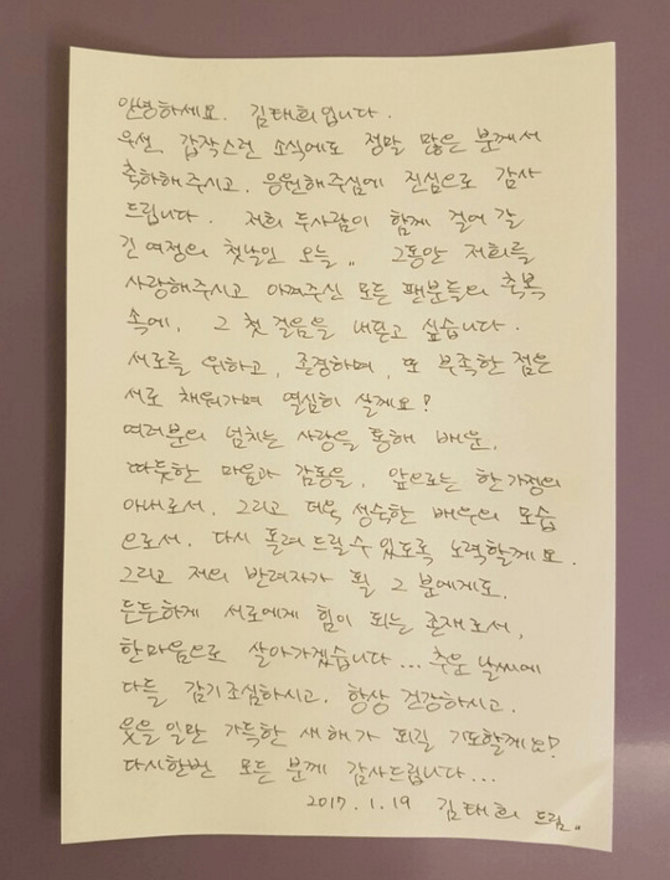 안녕하세요. 김태희입니다.
우선, 갑작스런 소식에도 정말 많은 분께서
축하해주시고, 응원해주심에 진심으로 감사
드립니다. 저희 두사람이 함께 걸어 갈
긴 여정의 첫날인 오늘.. 그동안 저희를
사랑해주시고 아껴주신 모든 팬분들의 축복
속에, 그 첫 걸음을 내딛고 싶습니다.
서로를 위하고, 존경하며, 또 부족한 점은
서로 채워가며 열심히 살게요!
여러분의 넘치는 사랑을 통해 배운,
따듯한 마음과 감동을, 앞으로는 한 가정의
아내로서, 그리고 더욱 성숙한 배우의 모습
으로서, 다시 돌려 드릴 수 있도록 노력할게요.
그리고 저의 반려자가 될 그 분에게도,
든든하게 서로에게 힘이 되는 존재로서,
한마음으로 살아가겠습니다... 추운 날씨에
다들 감기조심하시고, 항상 건강하시고,
웃을 일만 가득한 새해가 되길 기도할께요!
다시한번 모든 분께 감사드립니다...
2017.1.19 김태희 드림..